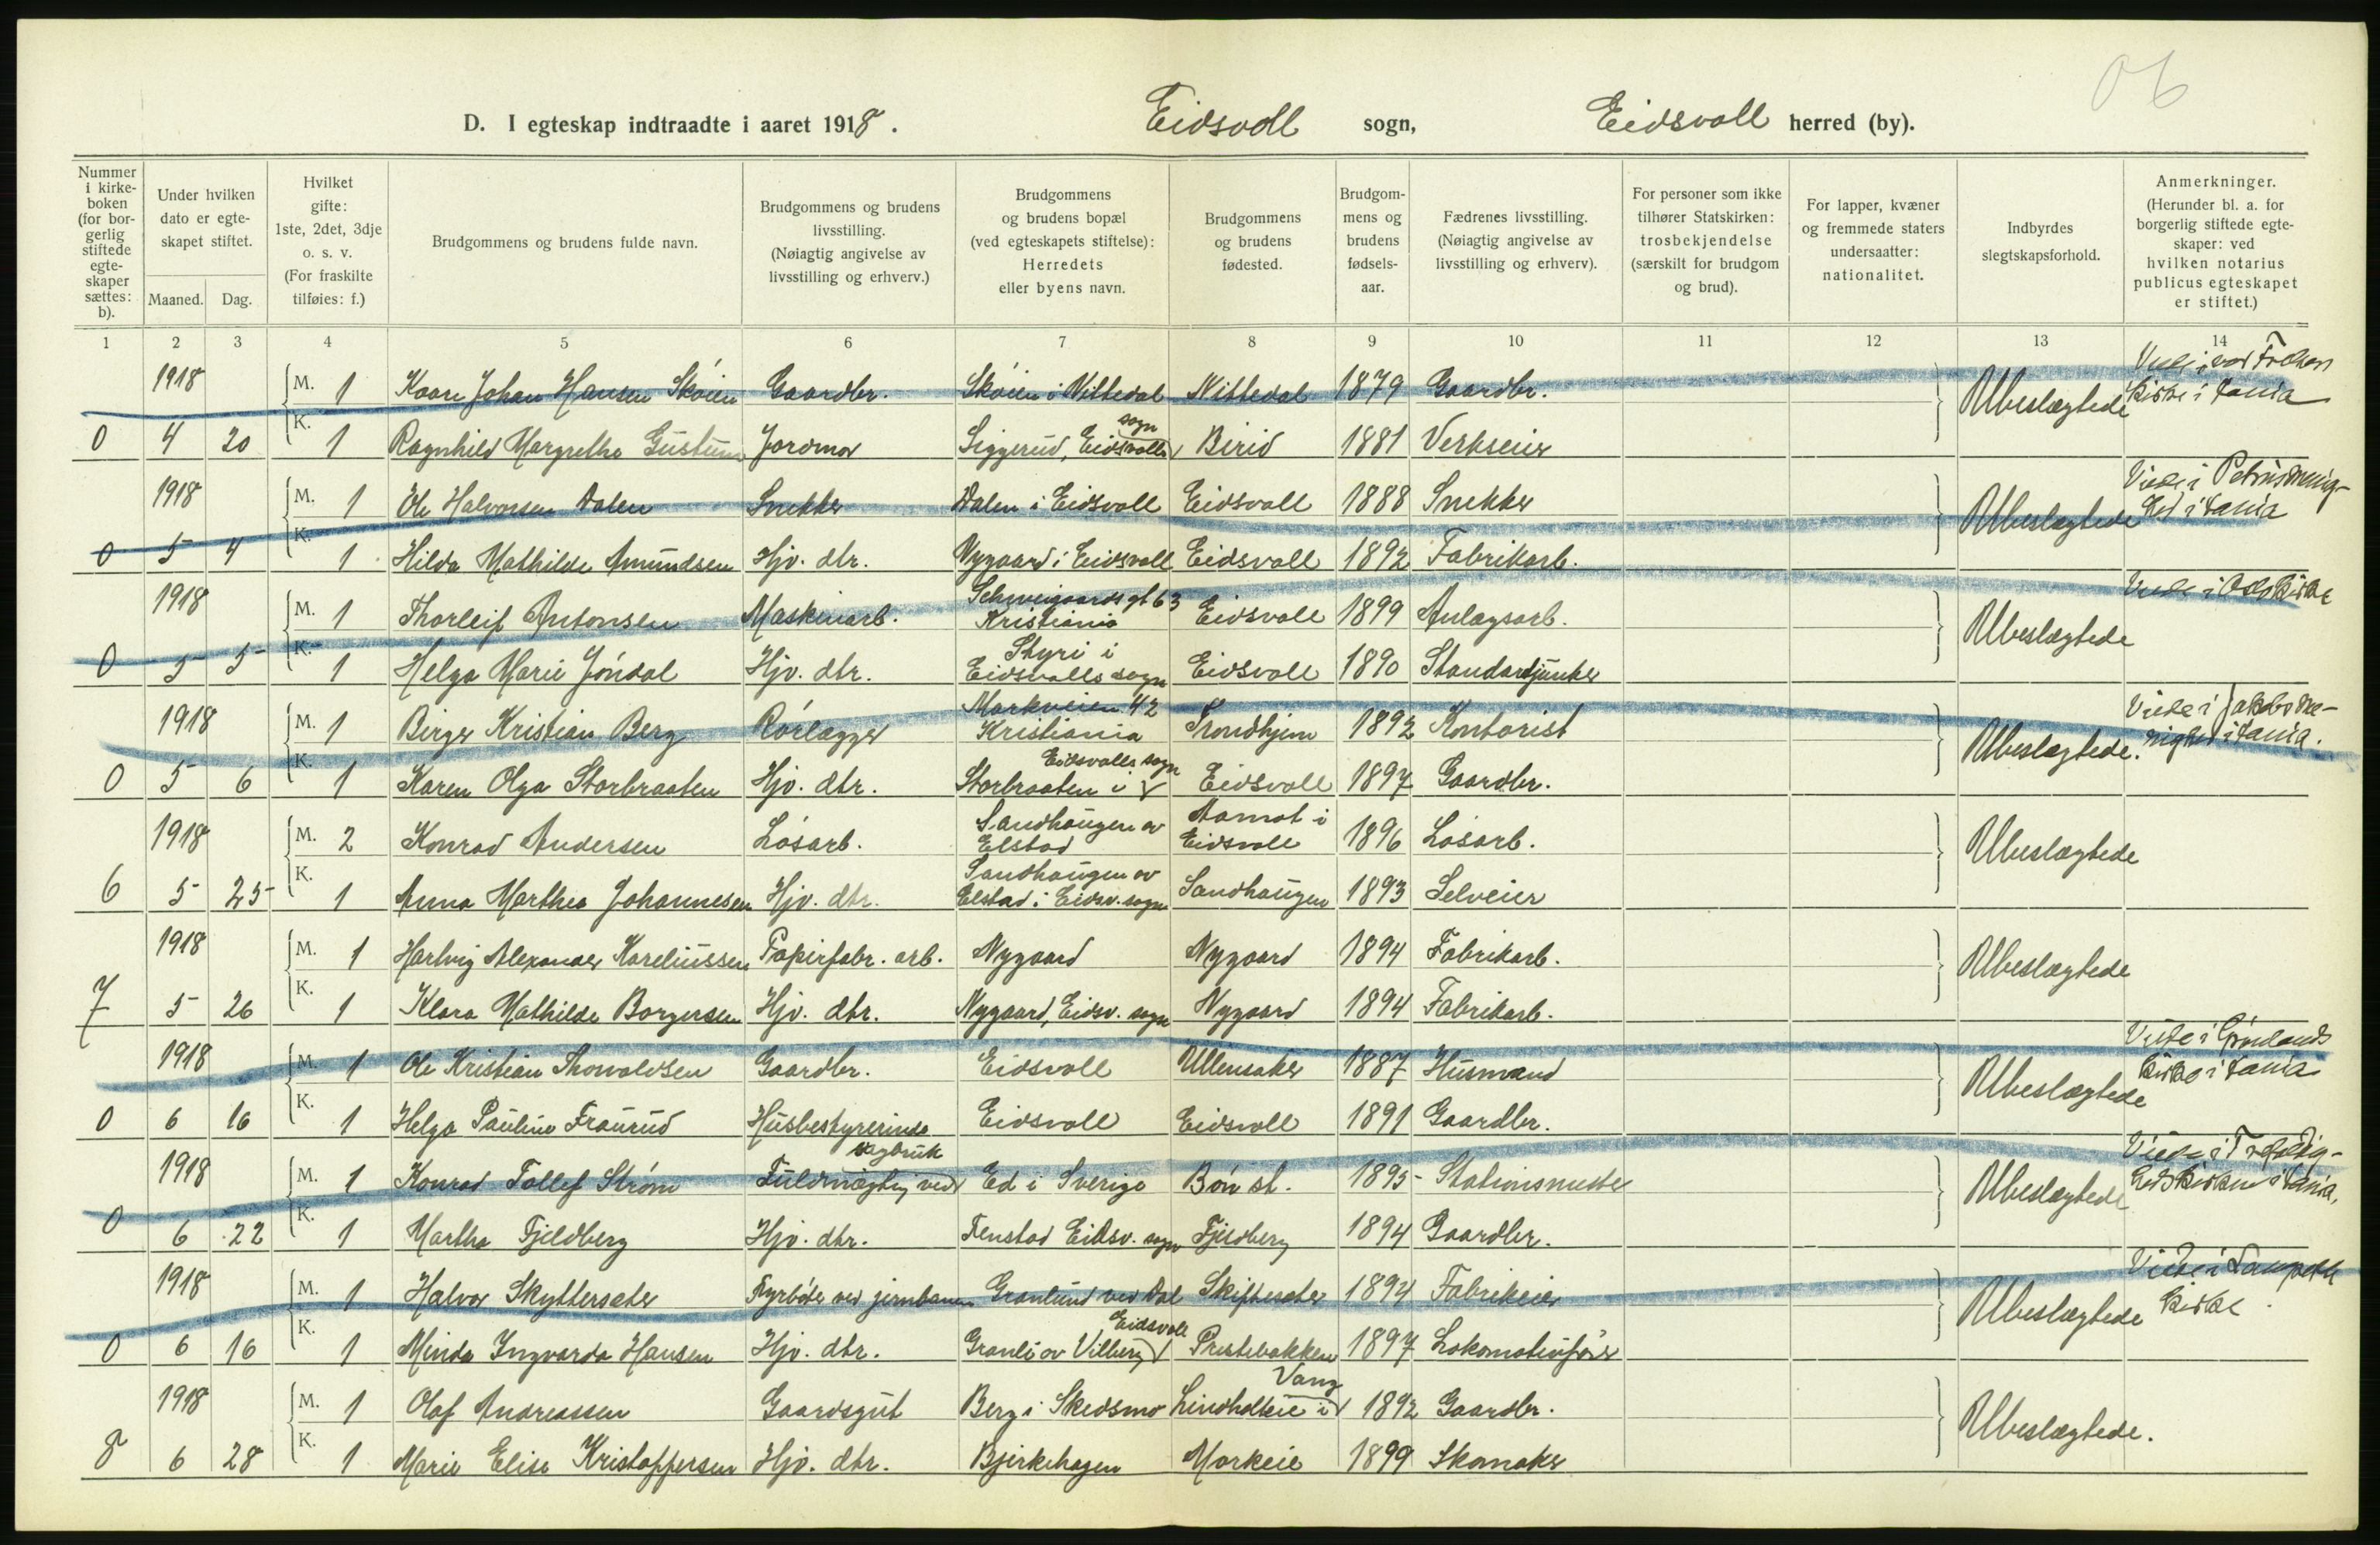 06
D. I egteskap indtraadte i aaret 1918. Eidsvoll sogn, Eidsvoll herred (by).
Nummer i kirke-boken (for bor-gerlig stiftede egte-skaper sættes: b).
Under hvilken dato er egte-skapet stiftet.
Maaned. Dag.
Hvilket gifte: 1ste, 2det, 3dje o. s. v. (For fraskilte tilføies: f.)
Brudgommens og brudens fulde navn.
Brudgommens og brudens livsstilling. (Nøiagtig angivelse av livsstilling og erhverv.)
Brudgommens og brudens bopæl (ved egteskapets stiftelse): Herredets eller byens navn.
Brudgommens og brudens fødested.
Brudgom-mens og brudens fødsels-aar.
Fædrenes livsstilling. (Nøiagtig angivelse av livsstilling og erhverv).
For personer som ikke tilhører Statskirken: trosbekjendelse (særskilt for brudgom og brud).
For lapper, kvæner og fremmede staters undersaatter: nationalitet.
Indbyrdes slegtskapsforhold.
Anmerkninger. (Herunder bl. a. for borgerlig stiftede egte-skaper: ved hvilken notarius publicus egteskapet er stiftet.)
1 2 3 4 5 6 7 8 9 10 11 12 13 14
1918 M. 1 Kaare Johan Hansen Skøien Gaardbr. Skøien i Nittedal Nittedal 1879 Gaardbr. Ubeslægtede Viede i vor Frelsers kirke i Kania
0 4 20 K. 1 Ragnhild Margrethe Gustum Jordmor Siggerud, Eidsvolls sogn Birid 1881 Verkseier
1918 M. 1 Ole Halvorsen Dalen Snekker Dalen i Eidsvoll Eidsvoll 1888 Snekker Ubeslægtede Viede i Petrus menig-hed i Kania
0 5 4 K. 1 Hilda Mathilde Amundsen Hjv. dtr. Nygaard i Eidsvoll Eidsvoll 1892 Fabrikarb.
1918 M. 1 Thorleif Antonsen Maskinarb. Schweigaards gt 63 Kristiania Eidsvoll 1899 Anlægsarb. Ubeslægtede Viede i Oslo kirke
0 5 5 K. 1 Helga Marie Jøndal Hjv. dtr. Styri i Eidsvolls sogn Eidsvoll 1890 Standartjunker
1918 M. 1 Birger Kristian Berg Rørlægger Markveien 42 Kristiania Trondhjem 1892 Kontorist Ubeslægtede. Viede i Jakobs me-nighed i Kania.
0 5 6 K. 1 Karen Olga Storbraaten Hjv. dtr. Storbraaten i Eidsvolls sogn Eidsvoll 1897 Gaardbr.
1918 M. 2 Konrad Andersen Løsarb. Sandhaugen av Elstad Aamot i Eidsvoll 1896 Løsarb. Ubeslægtede
6 5 25 K. 1 Anna Marthea Johannesen Hjv. dtr. Sandhaugen av Elstad i Eidsv. sogn Sandhaugen 1893 Selveier
1918 M. 1 Hartvig Alexander Kareliussen Papirfabr. arb. Nygaard Nygaard 1894 Fabrikarb. Ubeslægtede
7 5 26 K. 1 Klara Mathilde Borgersen Hjv. dtr. Nygaard, Eidsv. sogn Nygaard 1894 Fabrikarb.
1918 M. 1 Ole Kristian Thorvaldsen Gaardbr. Eidsvoll Ullensaker 1887 Husmand Ubeslægtede Viede i Grønlands kirke i Kania
0 6 16 K. 1 Helga Pauline Fraurud Husbestyrerinde Eidsvoll Eidsvoll 1891 Gaardbr.
1918 M. 1 Konrad Tollef Strøm Fuldmægtig ved sagbruk Ed i Sverige Bøn st. 1895 Stationsmester Ubeslægtede Viede i Trefoldig-hedskirken i Kania.
0 6 22 K. 1 Martha Fjeldberg Hjv. dtr. Tenstad Eidsv. sogn Fjeldberg 1894 Gaardbr.
1918 M. 1 Halvor Skyttersæter Fyrbøter ved jernbanen Granlund ved Dal Skiftesæter 1894 Fabrikeier Ubeslægtede Viede i kirke.
0 6 16 K. 1 Minda Ingvarda Hansen Hjv. dtr. Granli av Vilberg Eidsvoll Prestebakken 1897 Lokomotivfører
1918 M. 1 Olaf Andreassen Gaardsgut Berg i Skedsmo Lindholteie i Vang 1892 Gaardbr. Ubeslægtede.
8 6 28 K. 1 Marie Elise Kristoffersen Hjv. dtr. Bjerkehagen Morkeie 1899 Skomaker